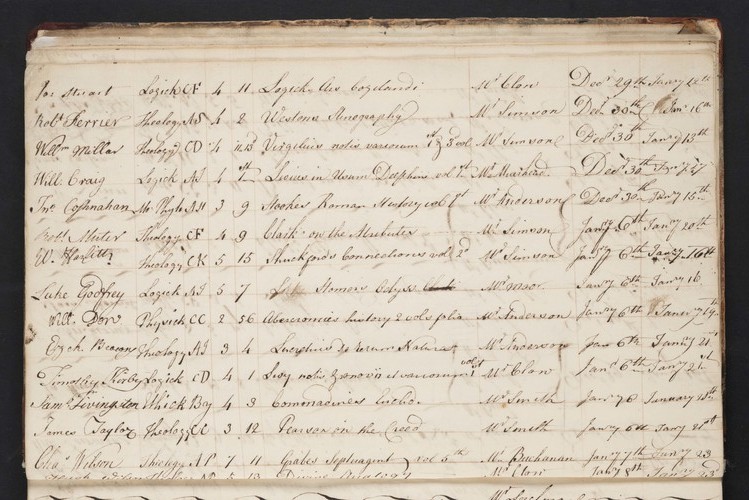 Jas Stuart Logick CF 4 11 Logick Ars Cogitandi Mr Clow Decr 29th Janry 12th
Robt Ferrier Theology AS 4 2 Westons Stenography Mr Simson Decr 30th Janr 16
Willm Millar Theology CD 4 Virgilius notis variorum 1st & 3d vol Mr Simson Decr 30th Janry 13th
Will Craig Logick 4 Livius in Usum Delphini vol 1st Mr Muirhead Decr 30th
Jno Cosnahan Nr Phyls AH 3 9 Hookes Roman History vol 1st Mr Anderson Decr 30th Janry 15th
Robt Theology CF 4 9 Clark on the Attributes Mr Simson Janry 6th Janry 20th
W. Hazlitt Theology CK 5 15 Shuckfords Connections vol 2d Mr Simson Janry 6th Janry 16th
Luke Godfrey Logick AI 5 7 Homers Odyss Mr Moor Janry 6th Janry 16
Will Dow Physick CC 2 56 Abercromies history 2 vols folio Mr Anderson Janry 6th Janry 19th
Ezek Theology AI 3 4 Lucretius de rerum Natura Mr Anderson Jan 6th Janry 21st
Timothy Kirby Logick CD 4 1 Livy notis variorum vol 1st Mr Clow Janr 6th Janry 21st
Saml Livingston Ethick 4 3 Commandines Euclid Mr Smith Janr 6
James Taylor Theology CC 3 12 Pearson on the Creed Mr Smith Janry 6th Janry 21st
Chas Wilson Theology 7 11 Grabes Septuagint vol 5th Mr Buchanan Janry 7th Janry 23
5 13 Divine Analogy Mr Clow Janry 8th Janry 23d